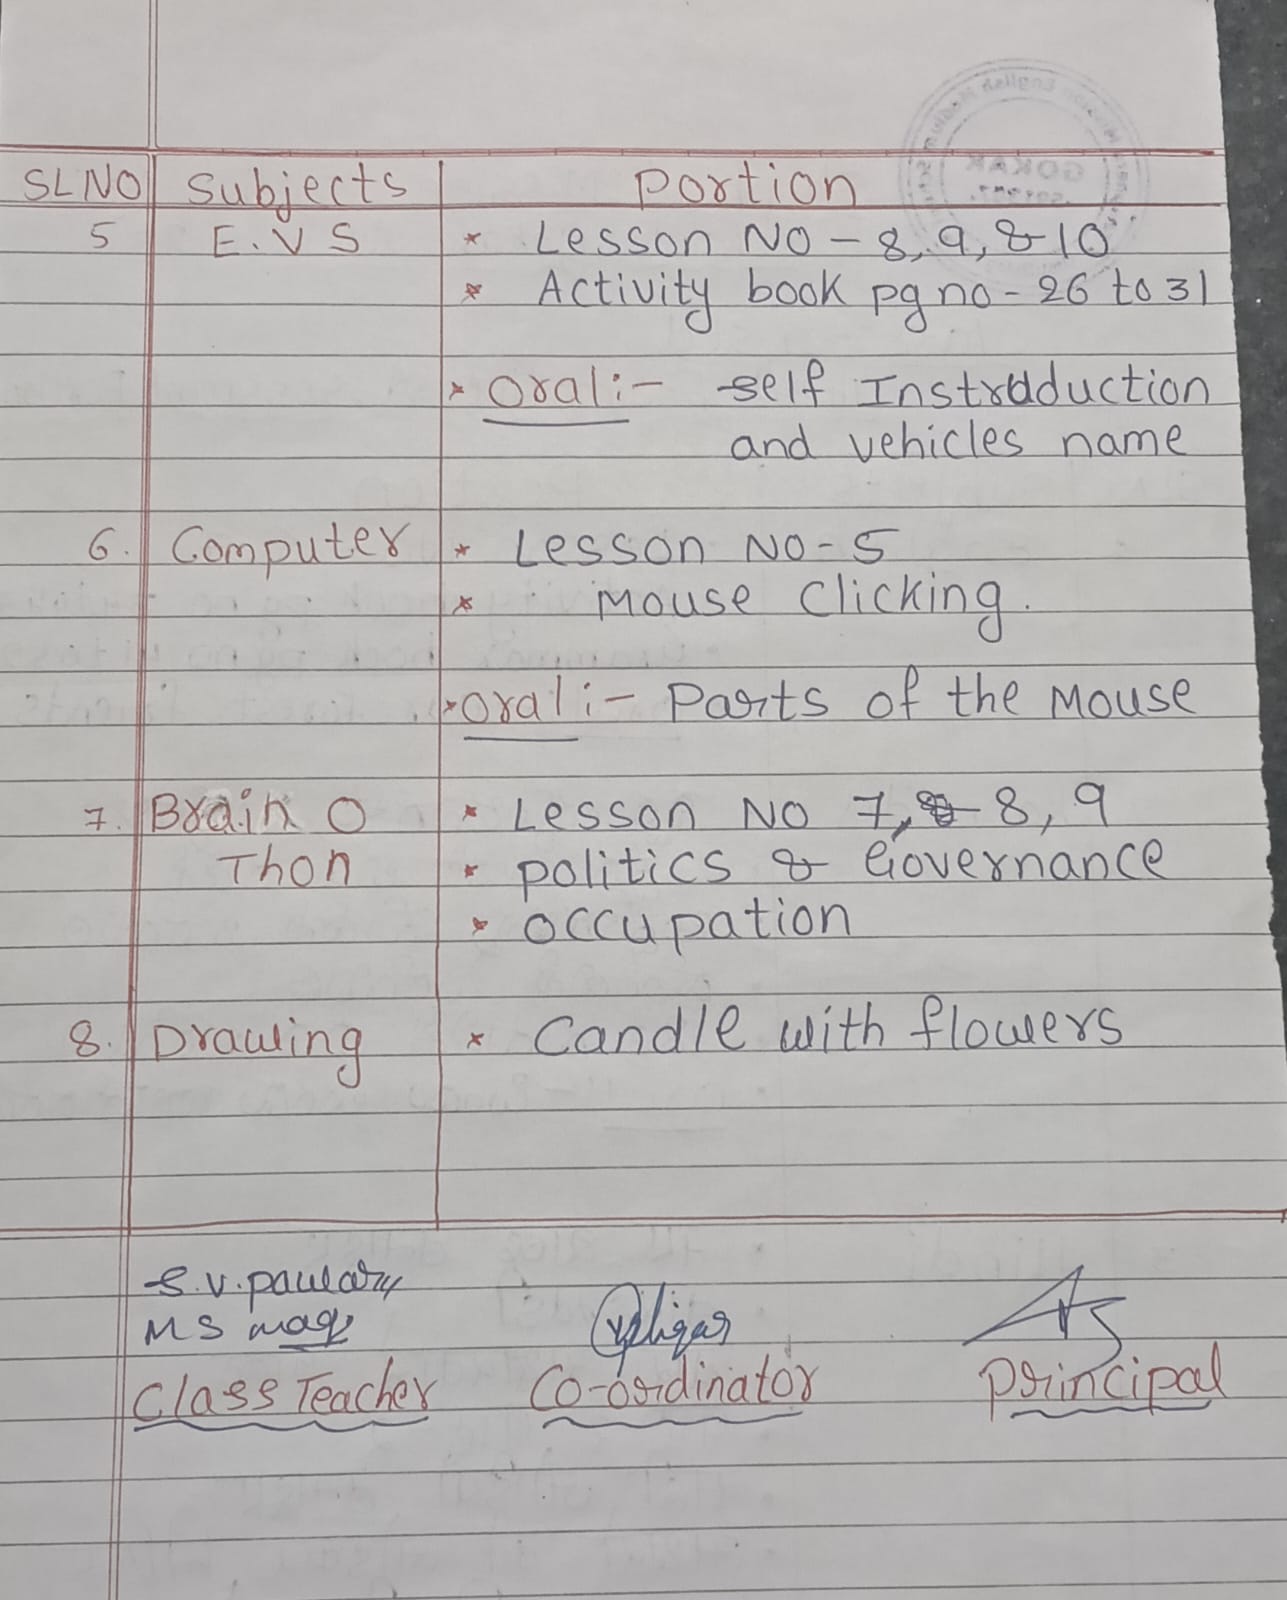 SL NO Subjects Portion
5 E.V S * Lesson No - 8, 9, & 10
* Activity book pg no - 26 to 31
* Oral :- self Instraduction
and vehicles name
6. Computer * Lesson No - 5
* Mouse Clicking.
* Oral :- Parts of the Mouse
7. Brain O * Lesson No 7, 8, 9
Thon * politics & Governance
* occupation
8. Drawing * Candle with flowers
S.V.
MS
Class Teacher Co-ordinator Principal
GOKAK